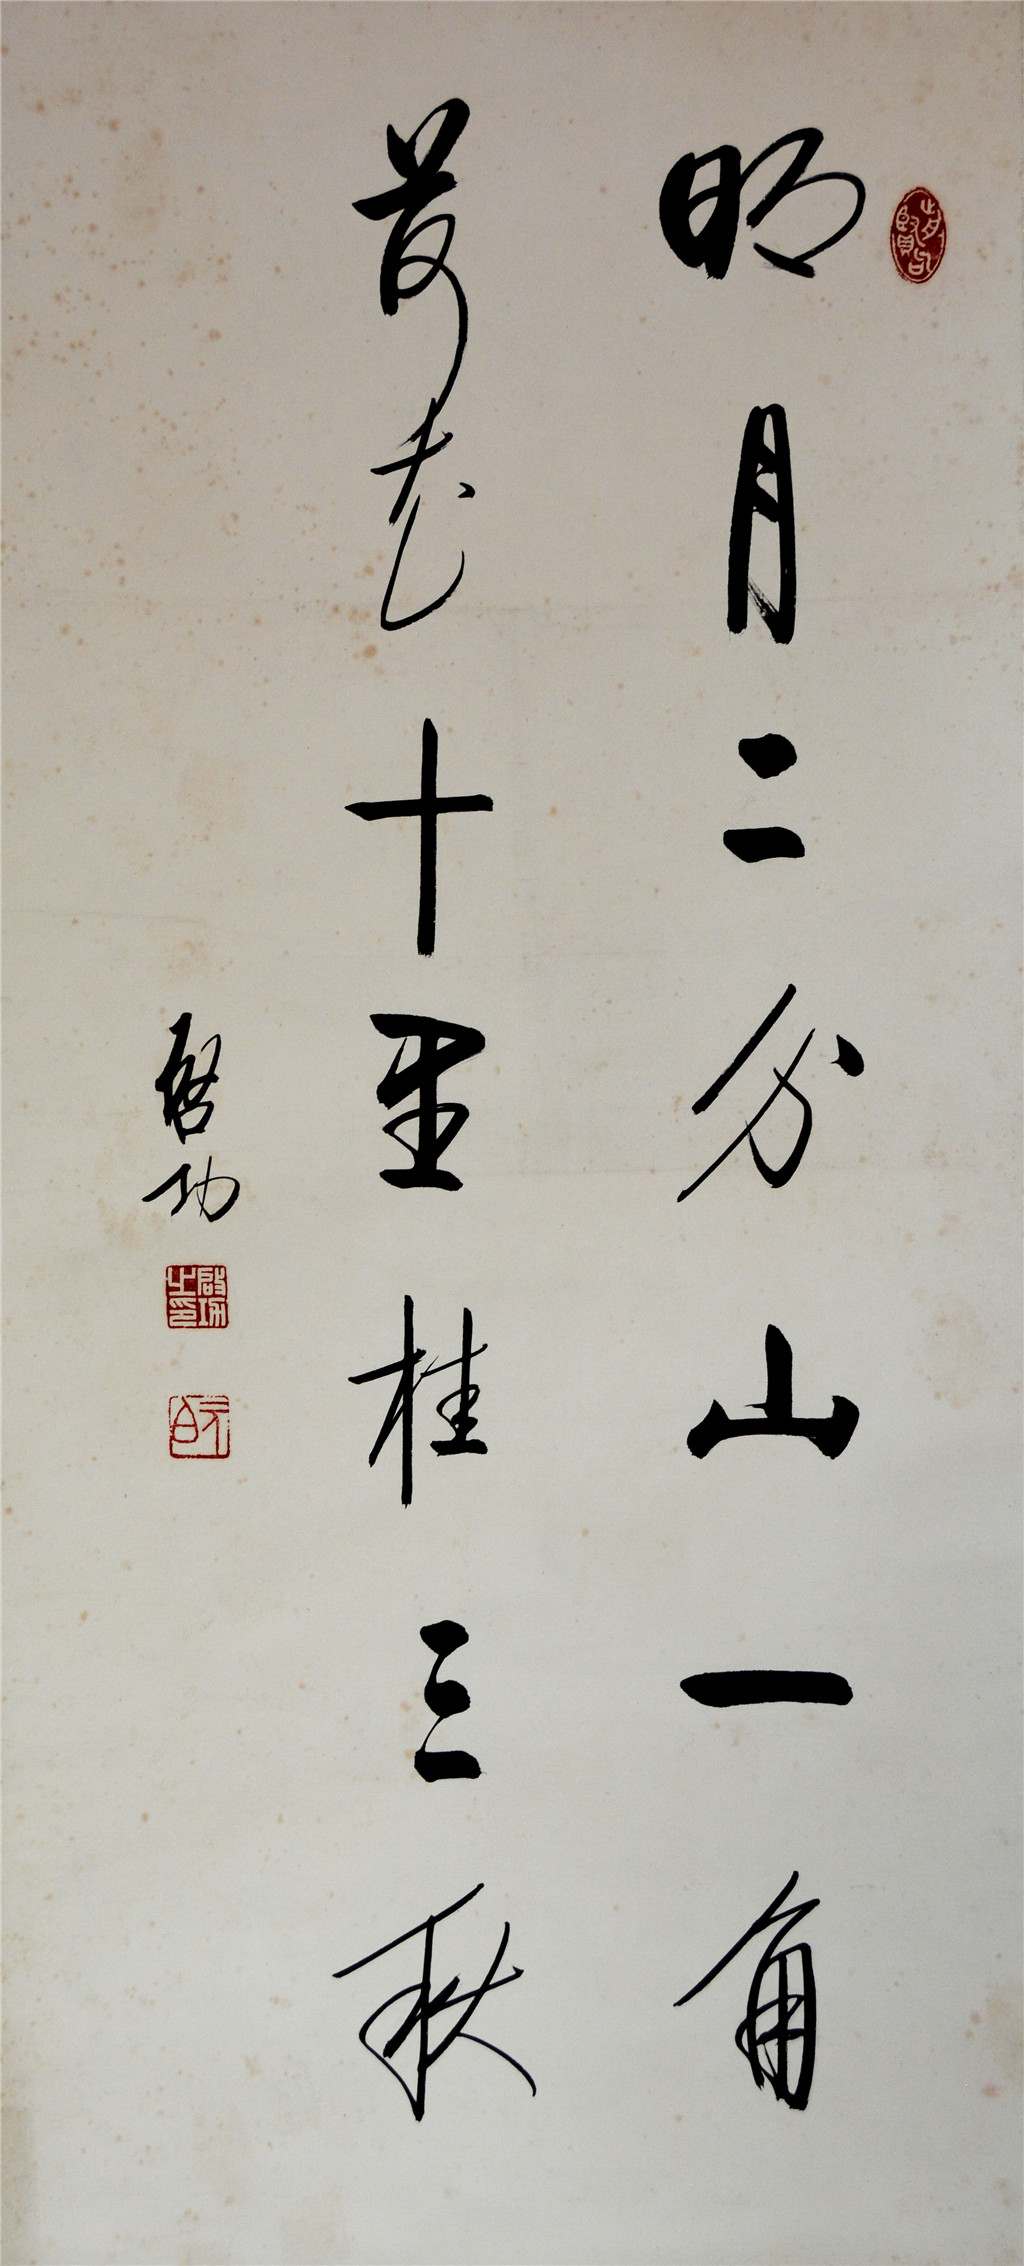 明月二分山一角
荷花十里桂三秋
啓功
啟功之印
元白